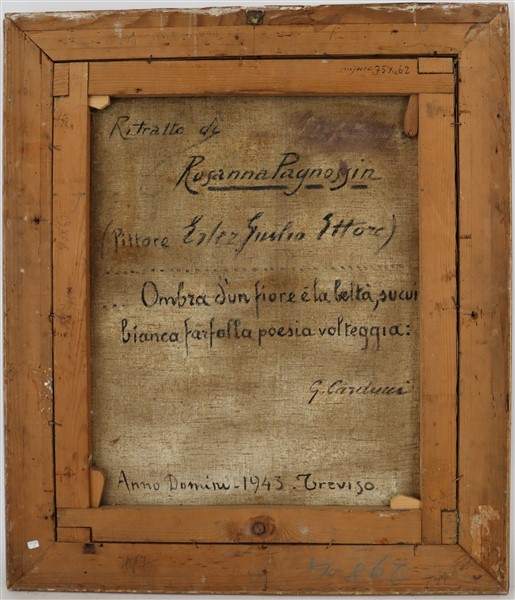 misura 75x62
Ritratto di
Rosanna Pagnossin
(Pittore Erler Giulio Ettore)
... Ombra d'un fiore è la beltà, su cui
bianca farfalla poesia volteggia:
G. Carducci
Anno Domini - 1943. Treviso